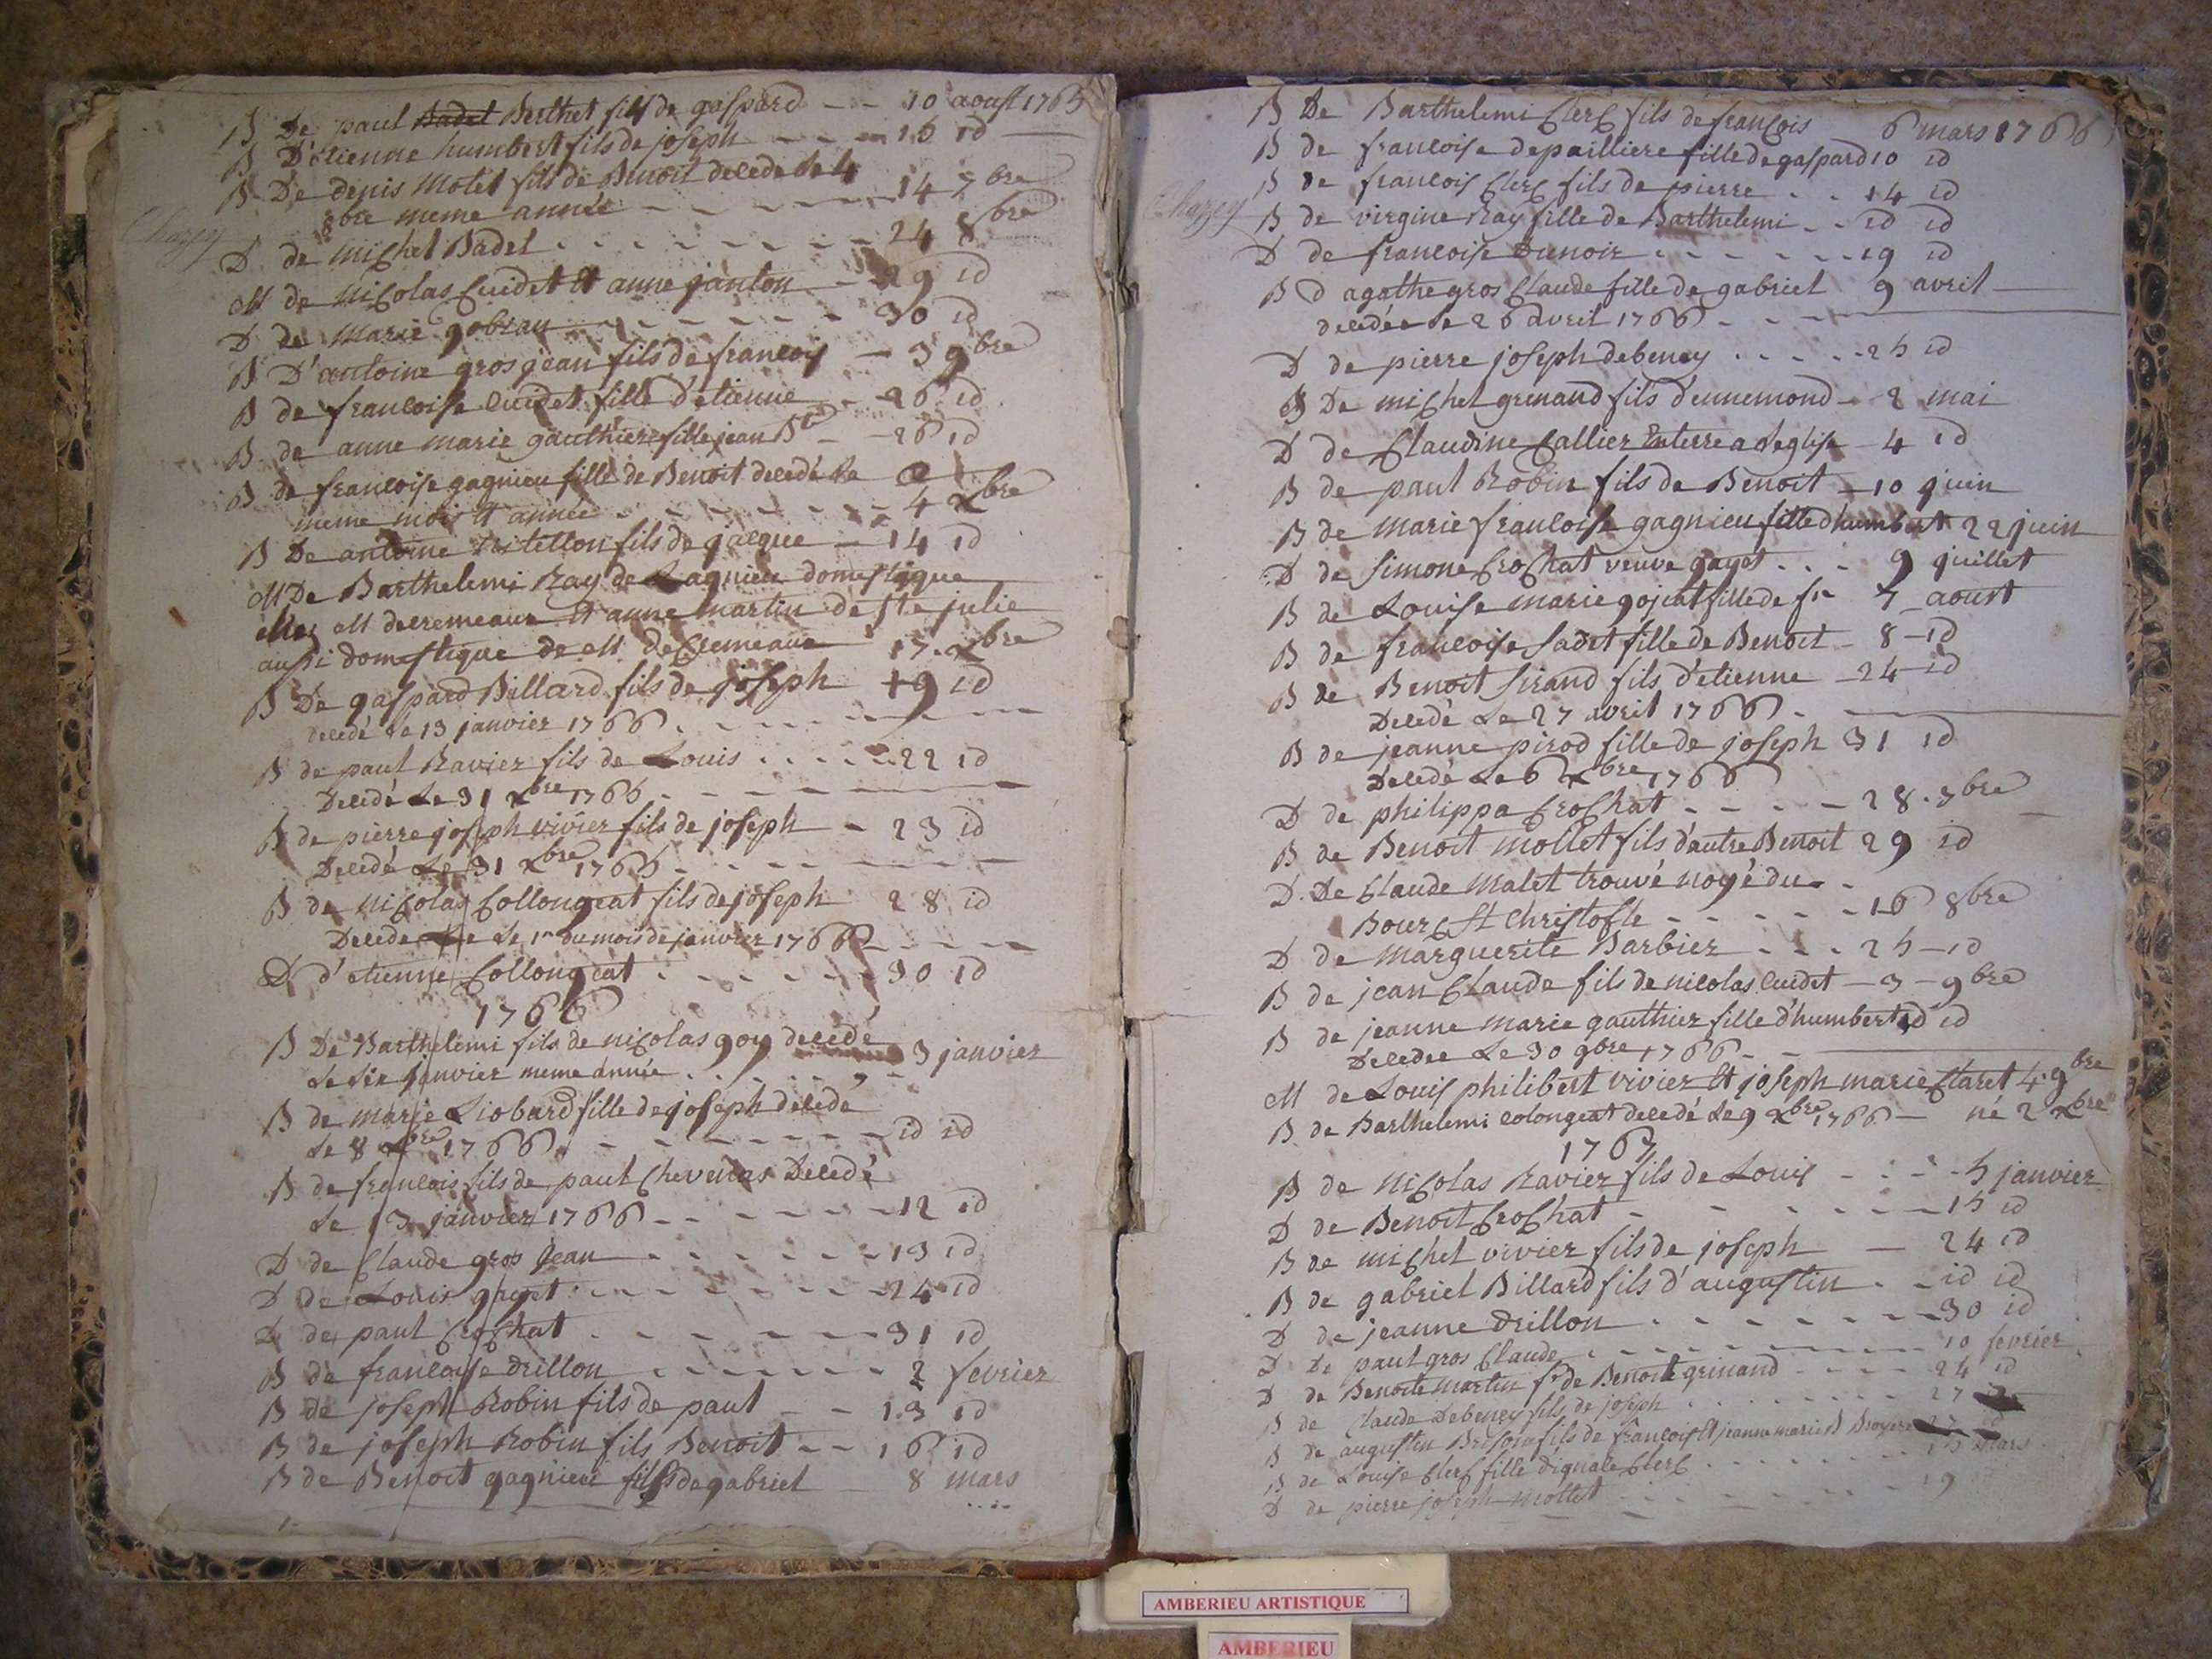 B De paul Badel Berthet fils de gaspard -- 10 aoust 1765
B D'etienne humbert fils de joseph --- 15 id
B De denis Molet fils de Benoit decedé le 4
8bre meme année ---- 14 7bre
Chazey
D de Michel Badel ....... 24 8bre
M de Nicolas Cuidet et anne janton - 29 id
D de Marie gobeau ------ 30 id
B D'antoine gros jean fils de francois - 3 9bre
B de francoise Cuidet fille d'etienne - 26 id
B de anne marie gauthier fille jean Bte - 26 id
B de francoise gagnieu fille de Benoit decedé le
meme mois et année ------ 4 xbre
B De antoine fils de jacque - 14 id
M De Barthelemi Ray de Lagnieu domestique
M decremeaux et anne martin de ste julie
aussi domestique de M decremeaux 17 xbre
B De gaspard Billard fils de joseph 19 id
decedé le 13 janvier 1766 ------
B de paul Ravier fils de Louis ..... 22 id
Decedé Le 31 xbre 1765 ------
B de pierre joseph vivier fils de joseph - 23 id
Decedé Le 31 xbre 1765 ------
B de Nicolas Collongeat fils de joseph 28 id
Decedé Le 1er du mois de janvier 1766 ----
D d'etienne Collongeat ...... 30 id
1766
B De Barthelemi fils de nicolas goy decedé
Le six janvier meme année ...... 3 janvier
B de marie Liobard fille de joseph decedé
Le 8 xbre 1766 ------ id id
B de francois fils de paul Chevenas Decedé
Le 13 janvier 1766 ------ 12 id
D de Claude gros Jean ------ 13 id
D de Louis gayet ------ 24 id
D de paul Crochat ------ 31 id
B de francoise Drillon ------ 2 fevrier
B de joseph Robin fils de paul -- 13 id
B de joseph Robin fils Benoit -- 16 id
B de Benoit gagnieu fils de gabriel 8 mars
B De Barthelemi Clerc fils de francois 6 mars 1766
B de francoise depailliere fille de gaspard 10 id
B de francois Clerc fils de pierre .. 14 id
Chazey
B de virgine Ray fille de Barthelemi .. id id
D de francoise Dunoir ...... 19 id
B d agathe gros Claude fille de gabriel 9 avril
decedée le 26 avril 1766 ---
D de pierre joseph debeney ..... 25 id
B De michel grinand fils d'ennemond - 2 mai
D de Claudine Callier Enterre a L'eglise - 4 id
B de paul Robin fils de Benoit - 10 juin
B de marie francoise gagnieu fille d'humbert 22 juin
D de Simone Crochat veuve gayet ... 9 juillet
B de Louise marie gojeat fille de fr 7 aoust
B de francoise Sadet fille de Benoit - 8 id
B de Benoit Sirand fils d'etienne - 24 id
Decedé Le 27 avril 1766 -
B de jeanne pirod fille de joseph 31 id
Decedé Le 6 xbre 1766
D de philippa Crochat ---- 28 7bre
B de Benoit mollet fils d'autre Benoit 29 id
D De Claude Malet trouvé noyé du -
Bourg St Christofle ----- 16 8bre
D de marguerite Barbier --- 25 id
B de jean Claude fils de nicolas Cuidet - 3 - 9bre
B de jeanne marie gauthier fille d'humbert id id
Decedée Le 30 9bre 1766 --
M de Louis philibert vivier Et joseph marie Claret 4 9bre
B de Barthelemi colongeat decedé Le 9 xbre 1766 - né 2 xbre
1767
B de Nicolas Ravier fils de Louis ---- 5 janvier
D de Benoit Crochat ------ 15 id
B de michel vivier fils de joseph - 24 id
B de gabriel Billard fils d'augustin .. id id
D de jeanne Drillon ...... 30 id
D De paul gros Claude ...... 10 fevrier
D de Benoite martin fe de Benoit grinand ---- 24 id
B de Claude Debeney fils de joseph ...... 27
B de augustin fils de francois Et jeanne marie
B de Louise Clerc fille d'ignace Clerc ...... 15 Mars
D de pierre joseph mollet ...... 19
AMBERIEU ARTISTIQUE
AMBERIEU